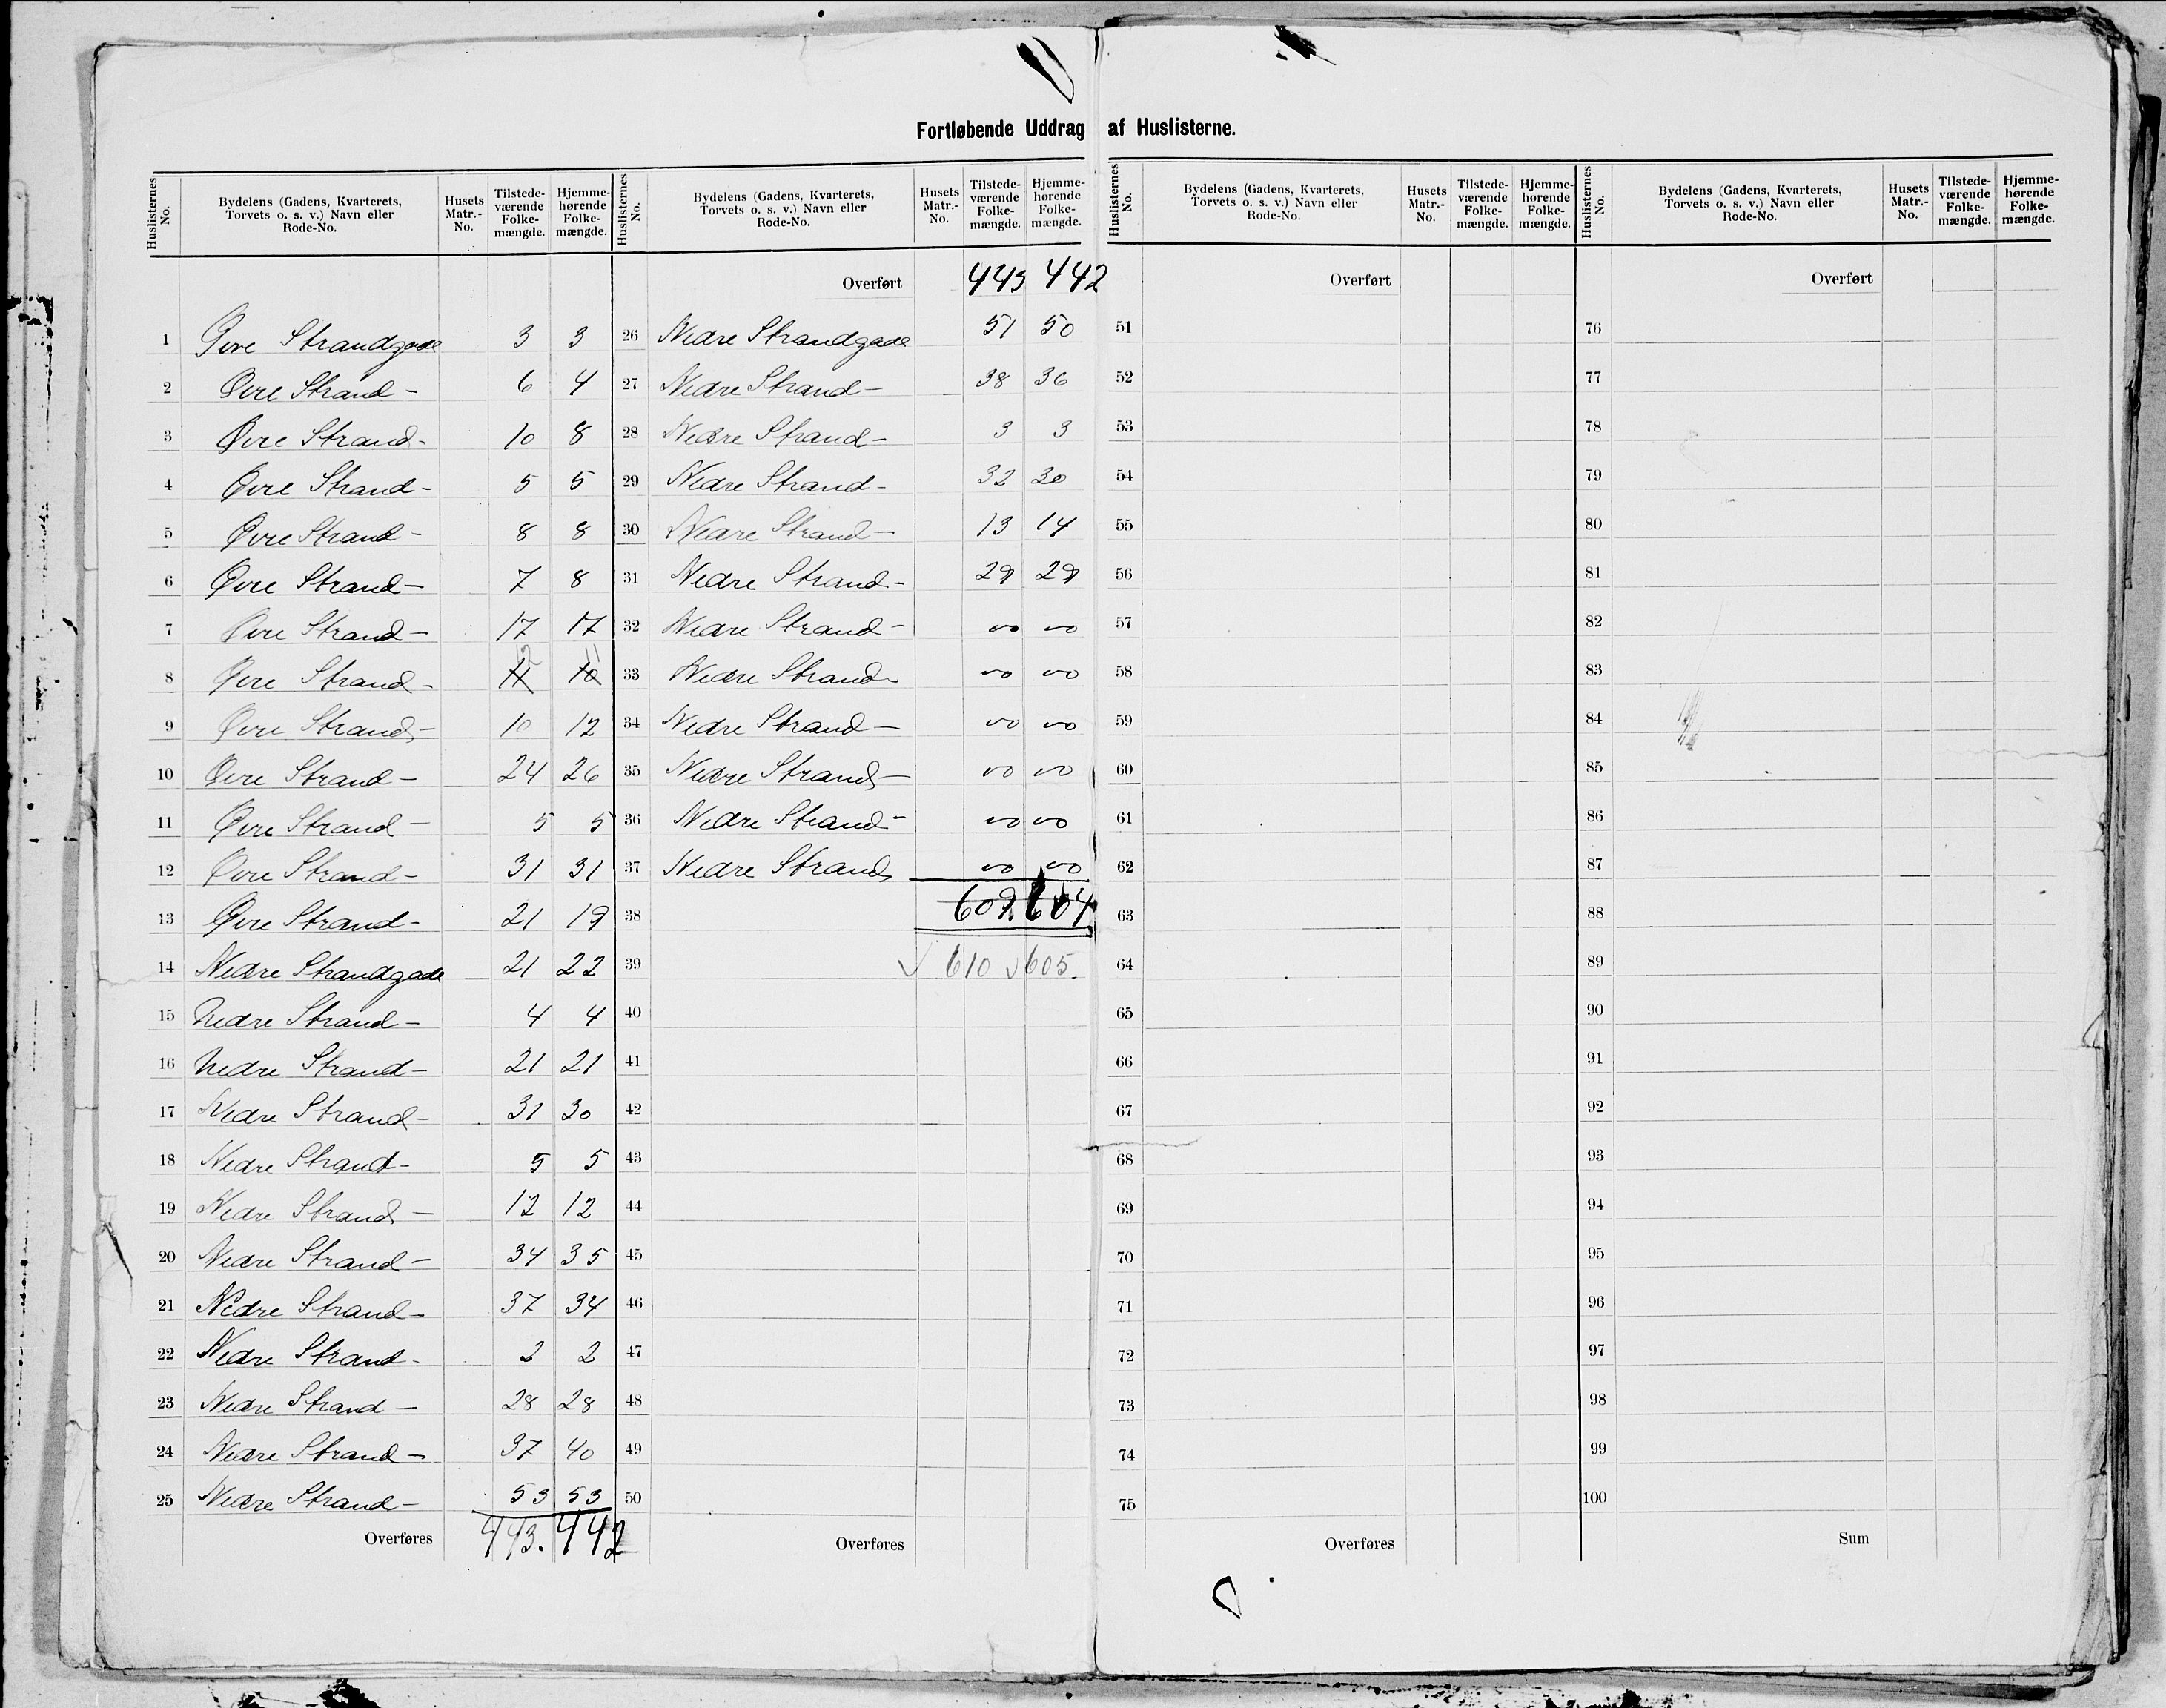 Fortløbende Uddrag af Huslisterne.
Huslisternes No. Bydelens (Gadens, Kvarterets, Torvets o. s. v.) Navn eller Rode-No. Husets Matr.-No. Tilstede-værende Folke-mængde. Hjemme-hørende Folke-mængde.
1 Øvre Strandgade 3 3
2 Øvre Strand - 6 4
3 Øvre Strand - 10 8
4 Øvre Strand - 5 5
5 Øvre Strand - 8 8
6 Øvre Strand - 7 8
7 Øvre Strand - 17 17
12 11
8 Øvre Strand - 11 10
9 Øvre Strand - 10 12
10 Øvre Strand - 24 26
11 Øvre Strand - 5 5
12 Øvre Strand - 31 31
13 Øvre Strand - 21 19
14 Nedre Strandgade 21 22
15 Nedre Strand - 4 4
16 Nedre Strand - 21 21
17 Nedre Strand - 31 30
18 Nedre Strand - 5 5
19 Nedre Strand - 12 12
20 Nedre Strand - 34 35
21 Nedre Strand - 37 34
22 Nedre Strand - 2 2
23 Nedre Strand - 28 28
24 Nedre Strand - 37 40
25 Nedre Strand - 53 53
Overføres 443. 442
Huslisternes No. Bydelens (Gadens, Kvarterets, Torvets o. s. v.) Navn eller Rode-No. Husets Matr.-No. Tilstede-værende Folke-mængde. Hjemme-hørende Folke-mængde.
Overført 443 442
26 Nedre Strandgade 51 50
27 Nedre Strand - 38 36
28 Nedre Strand - 3 3
29 Nedre Strand - 32 30
30 Nedre Strand - 13 14
31 Nedre Strand - 29 29
32 Nedre Strand -
33 Nedre Strand -
34 Nedre Strand -
35 Nedre Strand -
36 Nedre Strand -
37 Nedre Strand
38 609. 604
39 610 605.
40
41
42
43
44
45
46
47
48
49
50
Overføres
Huslisternes No. Bydelens (Gadens, Kvarterets, Torvets o. s. v.) Navn eller Rode-No. Husets Matr.-No. Tilstede-værende Folke-mængde. Hjemme-hørende Folke-mængde.
Overført
51
52
53
54
55
56
57
58
59
60
61
62
63
64
65
66
67
68
69
70
71
72
73
74
75
Overføres
Huslisternes No. Bydelens (Gadens, Kvarterets, Torvets o. s. v.) Navn eller Rode-No. Husets Matr.-No. Tilstede-værende Folke-mængde. Hjemme-hørende Folke-mængde.
Overført
76
77
78
79
80
81
82
83
84
85
86
87
88
89
90
91
92
93
94
95
96
97
98
99
100
Sum